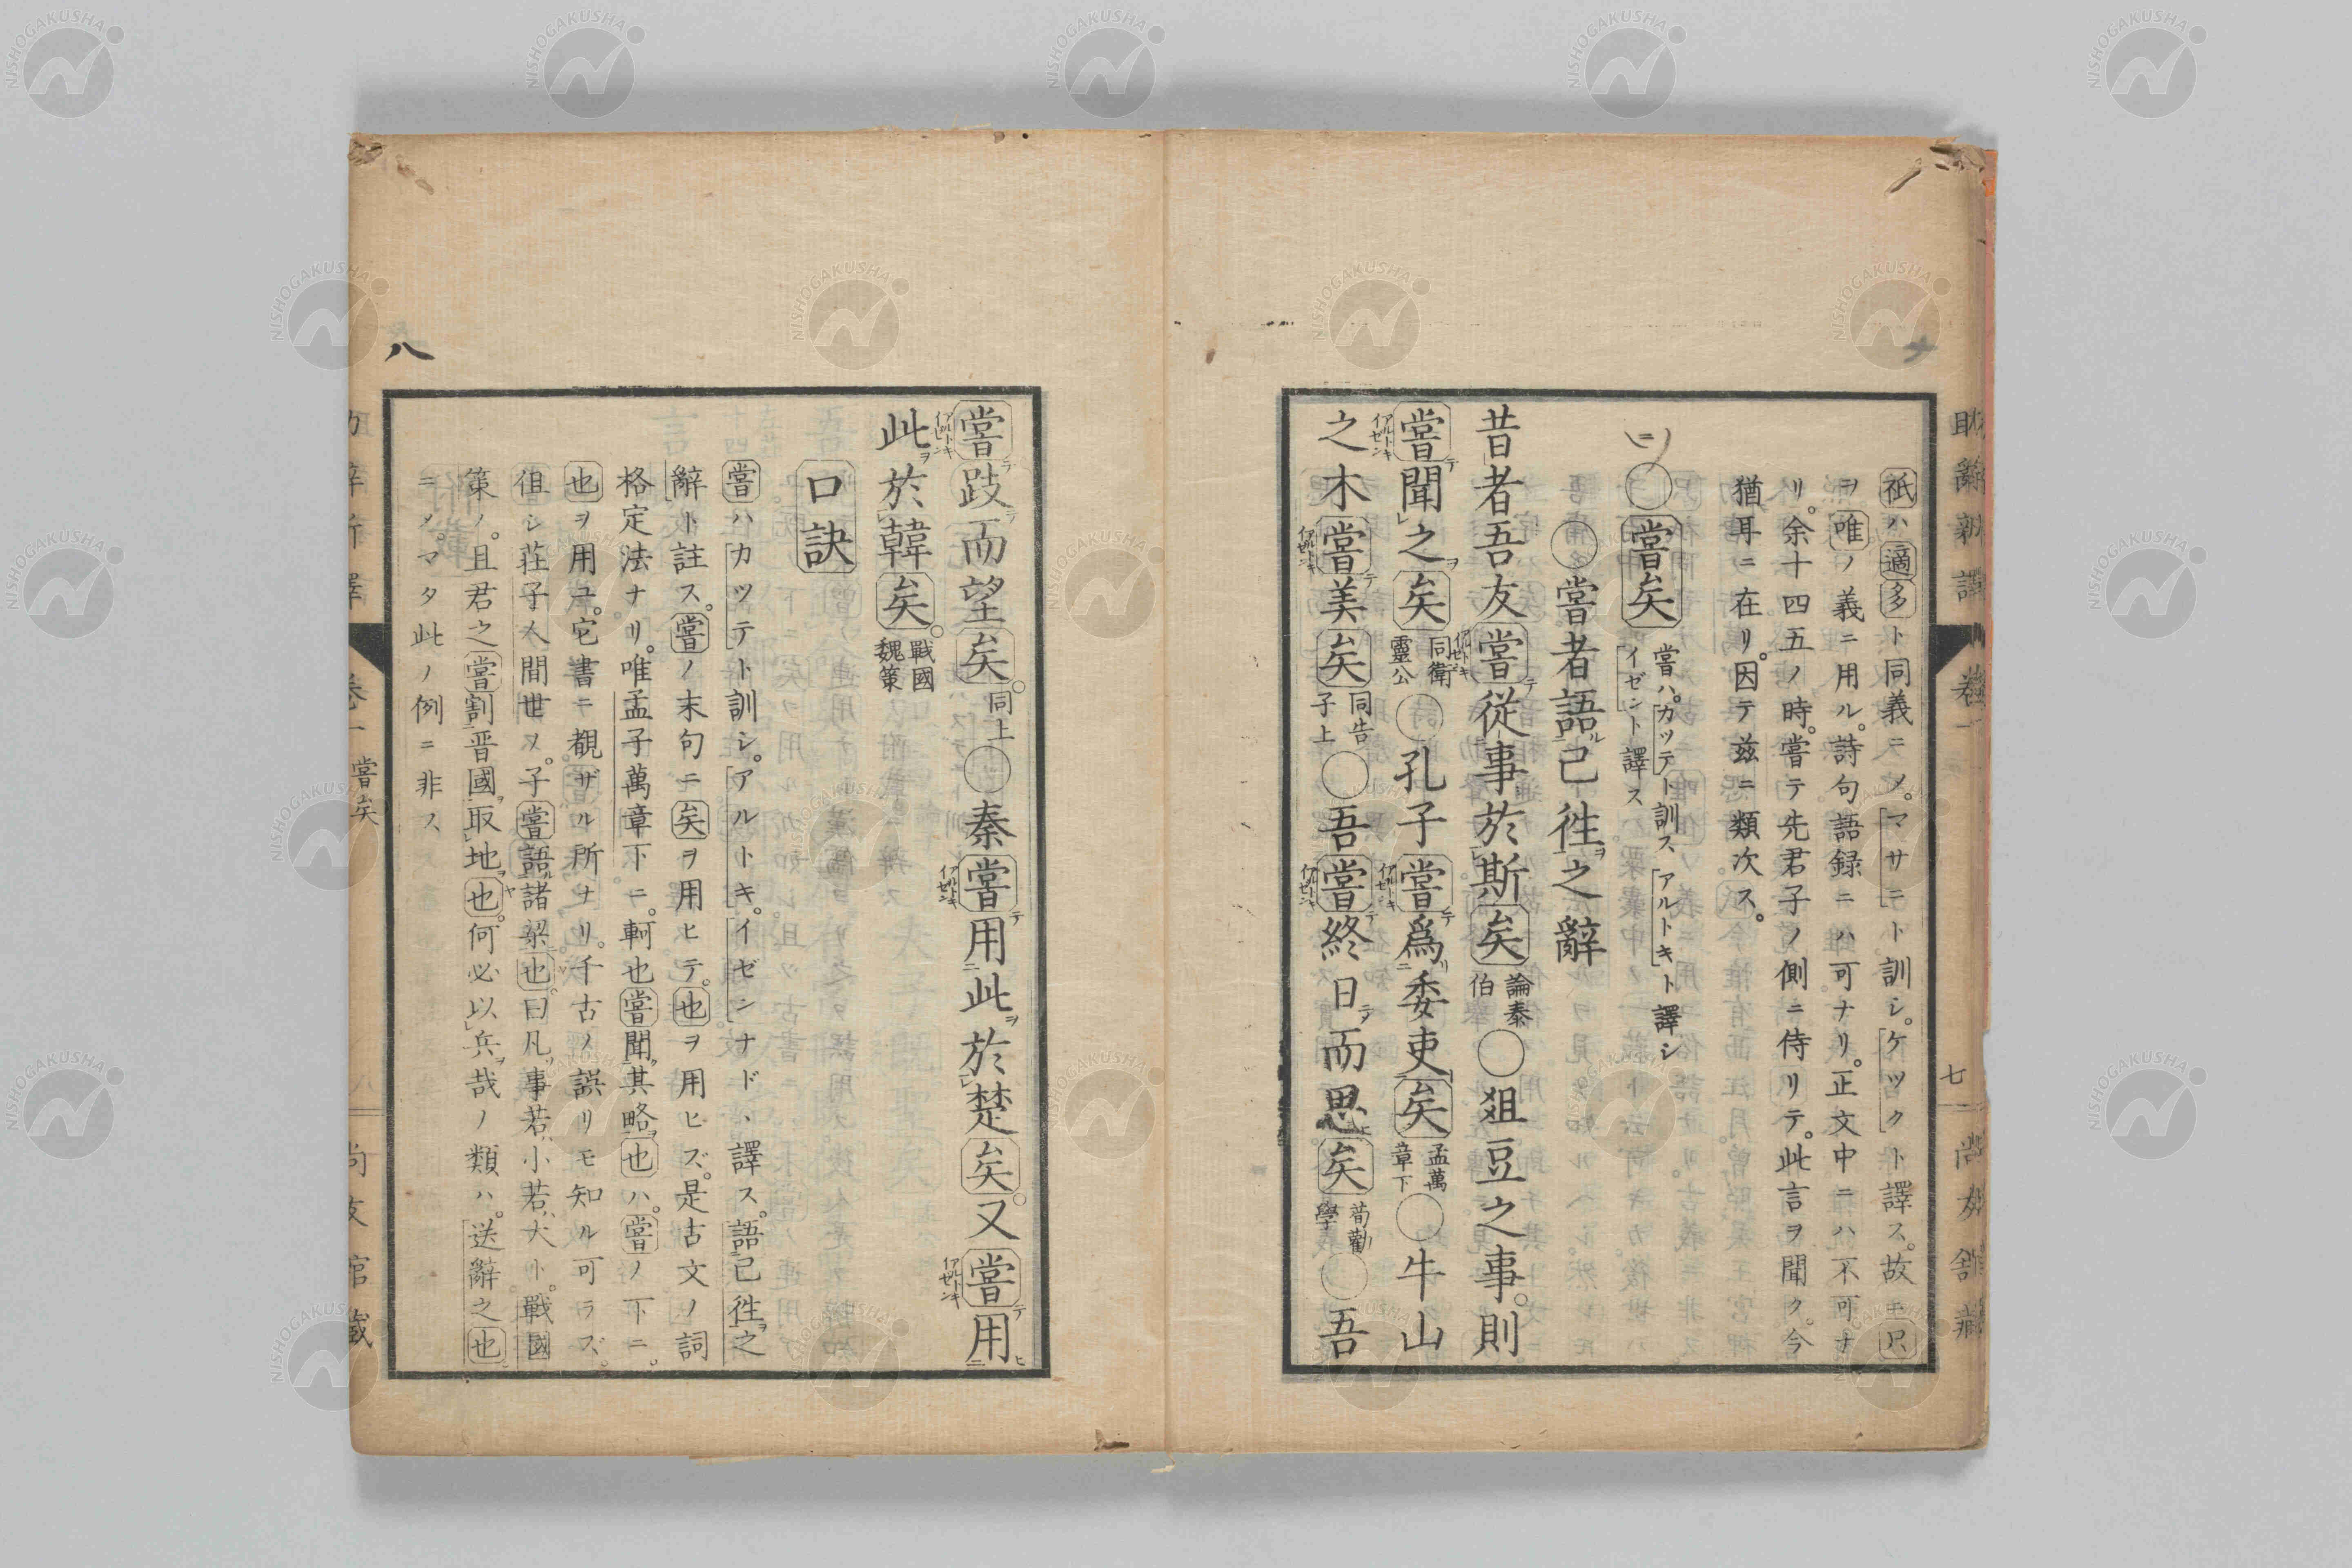 祇ハ適多ト同義ニメ。マサニト訓シ。ケツクト譯ス。故ニ只
ヲ唯ノ義ニ用ル。詩句語録ニハ可ナリ。正文中ニハ不可ナ
リ。余十四五ノ時。嘗テ先君子ノ側ニ侍リテ。此言ヲ聞ク。今
猶耳ニ在リ。因テ茲ニ類次ス。
○嘗矣 嘗ハ。カツテト訓ス アルトキト譯シ
イゼント譯ス
○嘗者語已往之辭
昔者吾友嘗從事於斯矣 論泰伯 ○俎豆之事。則
嘗聞之矣 同衛靈公 ○孔子嘗爲委吏矣 孟萬章下 ○牛山
之木嘗美矣 同告子上 ○吾嘗終日而思矣 荀勸學 ○吾
七
嘗跂而望矣。 同上 ○秦嘗用此於楚矣。又嘗用
此於韓矣。 戰國魏策
口訣
嘗ハカツテト訓シ。アルトキ。イゼンナド、譯ス。語已往之
辭ト註ス。嘗ノ末句ニ矣ヲ用ヒテ。也ヲ用ヒズ。是古文ノ詞
格定法ナリ。唯孟子萬章下ニ。軻也嘗聞其略也ハ。嘗ノ下ニ。
也ヲ用ユ。宅書ニ覩ザル所ナリ。千古ノ誤リモ知ル可ラズ。
但シ莊子人間世ノ。子嘗語諸梁也。曰凡事若小若大ト。戰國
策ノ。且君之嘗割晋國取地也。何必以兵哉ノ類ハ。送辭之也
ニノ。マタ此ノ例ニ非ス
八
卷一 嘗矣